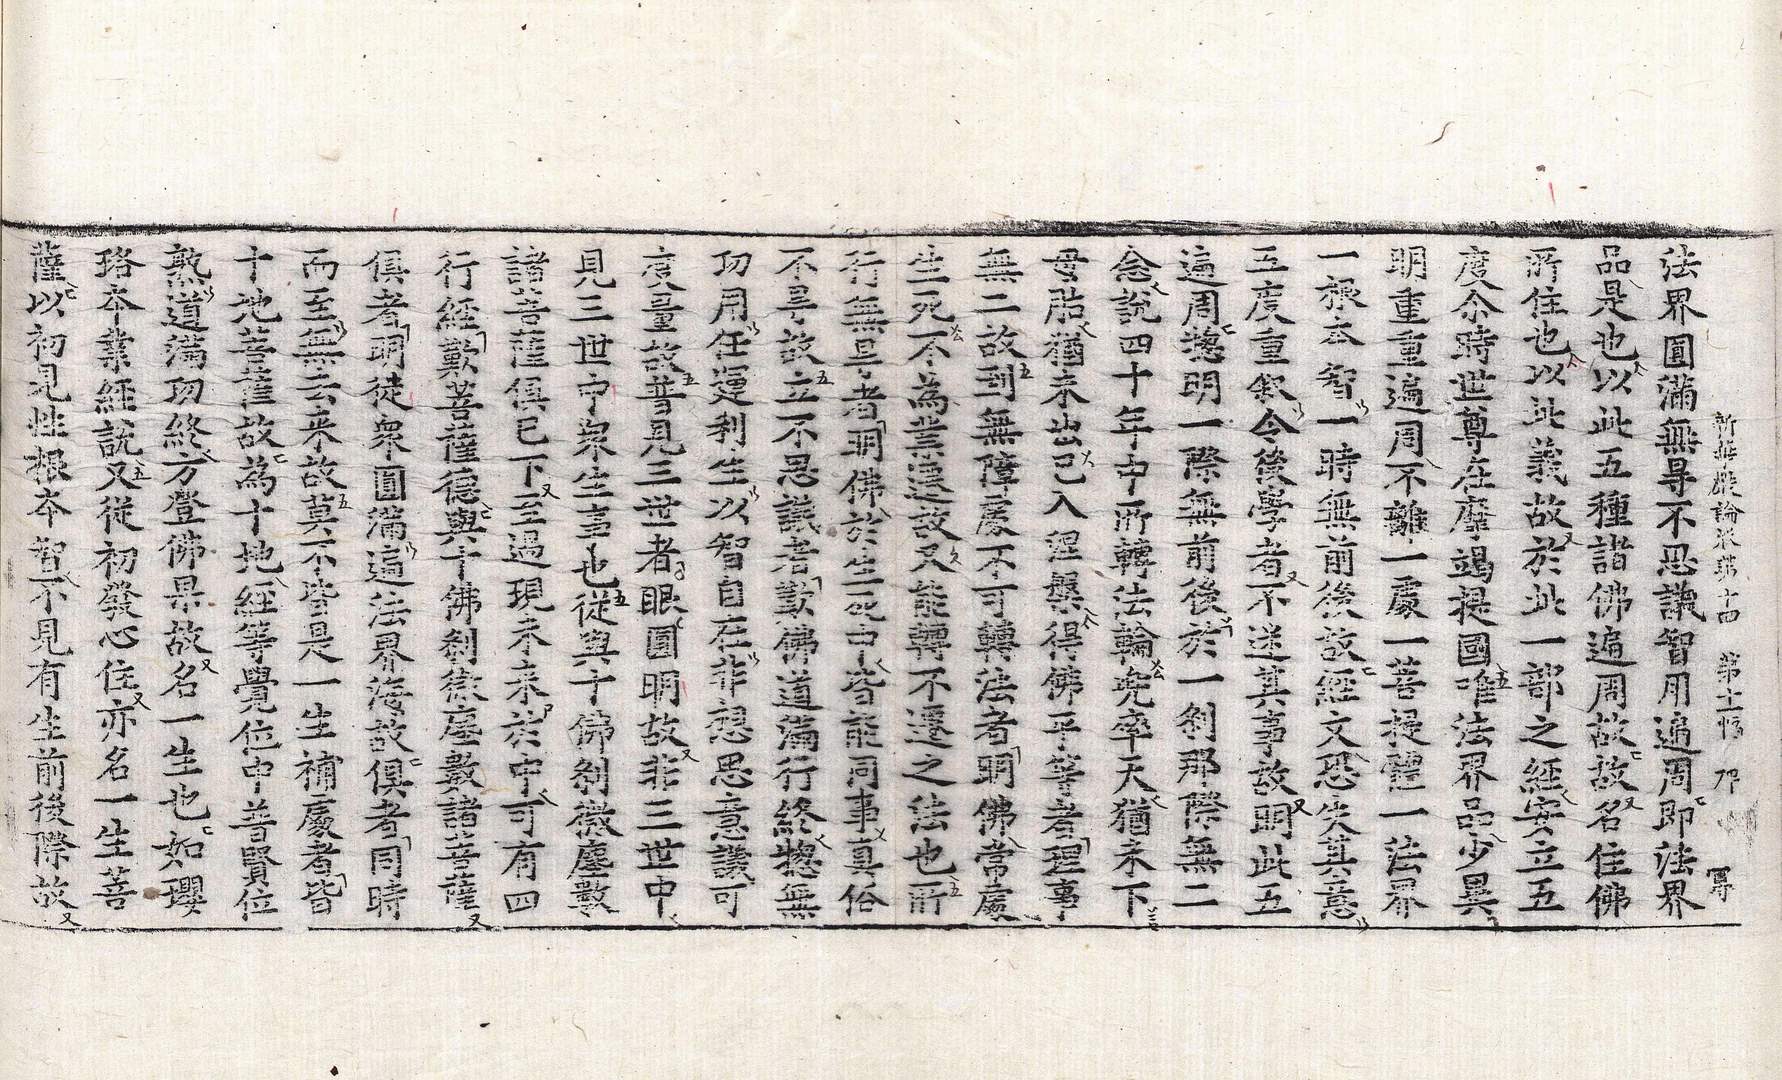 新華嚴論卷第十四 第十一 卯
法界圓滿無㝵不思議智用遍周即法界
品是也以此五種諸佛遍周故故名住佛
所住也以此義故於此一部之經安立五
度尒時世尊在摩竭提國唯法界品少異
明重重遍周不離一處一菩提體一法界
一根本智一時無前後故經文恐失其意
五度重叙令後學者不迷其事故明此五
遍周揔明一際無前後於一刹那際無二
念說四十年中所轉法輪兜率天猶未下
母胎猶未出已入涅槃得佛平等者理事
無二故到無障處不可轉法者明佛常處
生死不為業遷故又能轉不遷之法也所
行無㝵者明佛於生死中皆能同事真俗
不㝵故立不思議者歎佛道滿行終揔無
功用任運利生以智自在非想思意議可
度量故普見三世者眼圓明故非三世中
見三世中衆生事也從與十佛刹微塵數
諸菩薩俱已下至過現未來於中可有四
行經歎菩薩德與十佛刹微塵數諸菩薩
俱者明徒衆圓滿遍法界海故俱者同時
而至無去來故莫不皆是一生補處者皆
十地菩薩故為十地經等覺位中普賢位
熟道滿功終方登佛果故名一生也如瓔
珞本業經說又從初發心住亦名一生菩
薩以初見性根本智不見有生前後際故